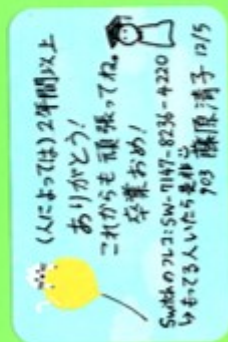 (人によっては)2年間以上
ありがとう!
これからも頑張ってね。
卒業おめ!
Switchのフレコ:SW-7147-8236-4220
もってる人いたら是非
903 藤原清子 12/5